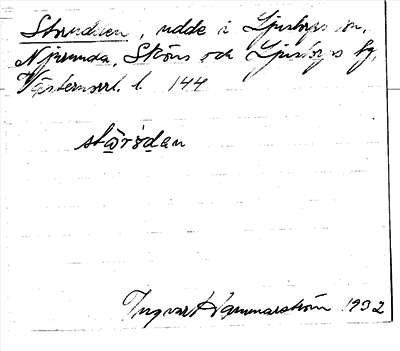 Storudden, udde i Ljustorps sn,
Njurunda, Sköns och Ljustorps tg,
Västernorrl. l. 144
Ingvar Hammarström 1932